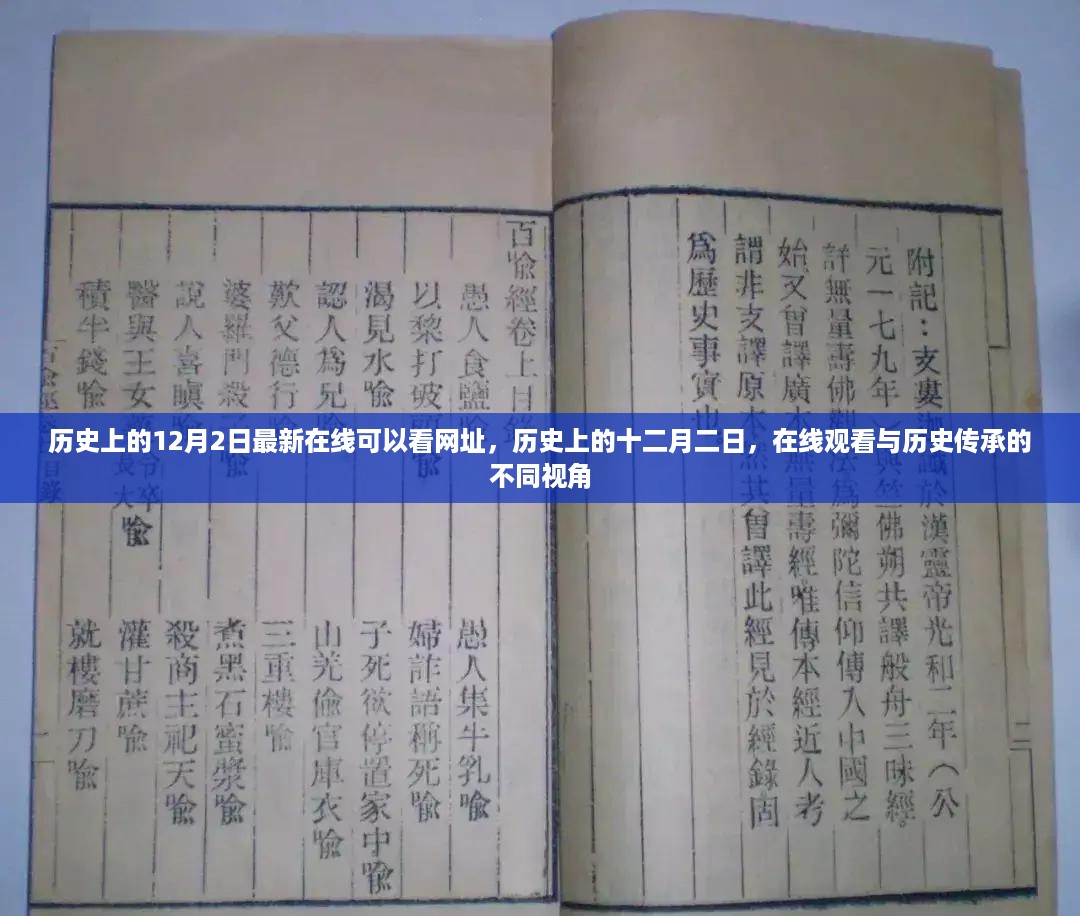 历史上的12月2日最新在线可以看网址，历史上的十二月二日，在线观看与历史传承的
不同视角
附記：支婁迦讖於漢靈帝光和二年（公
元一七九年）與竺佛朔共譯般舟三昧經。
詳無量壽佛觀法為彌陀信仰傳入中國之
始又曾譯廣本無量壽經唯傳本經近人考
謂非支譯原本然其曾譯此經見於經錄固
為歷史事實也
百喻經卷上目錄
愚人食鹽喻 愚人集牛乳喻
以棃打破頭喻 婦詐語稱死喻
渴見水喻 子死欲停置家中喻
認人為兄喻 山羌偷官庫衣喻
歎父德行喻 三重樓喻
婆羅門殺子喻 煮黑石蜜漿喻
說人喜瞋喻 殺商主祀天喻
醫與王女藥令卒長大喻 灌甘蔗喻
債半錢喻 就樓磨刀喻